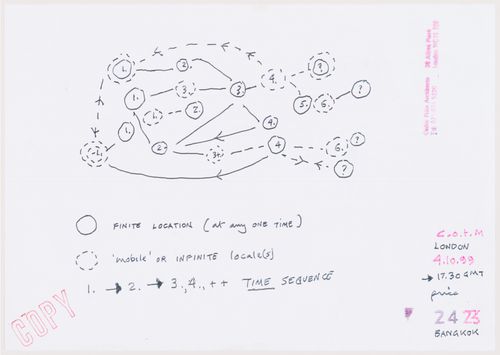 1.
2.
3.
4.
?
1.
3.
3
2.
5.
6.
?
1.
4.
2.
3+
4
6.
?
?
-1.
FINITE LOCATION (at any one time)
'mobile' OR INFINITE locale(s)
1. → 2. → 3., 4., ++ TIME SEQUENCE
COPY
Cedric Price Architects
38 Alfred Place
C.O.T.M
LONDON
4.10.99
→ 17.30 GMT
price
24 23
BANGKOK